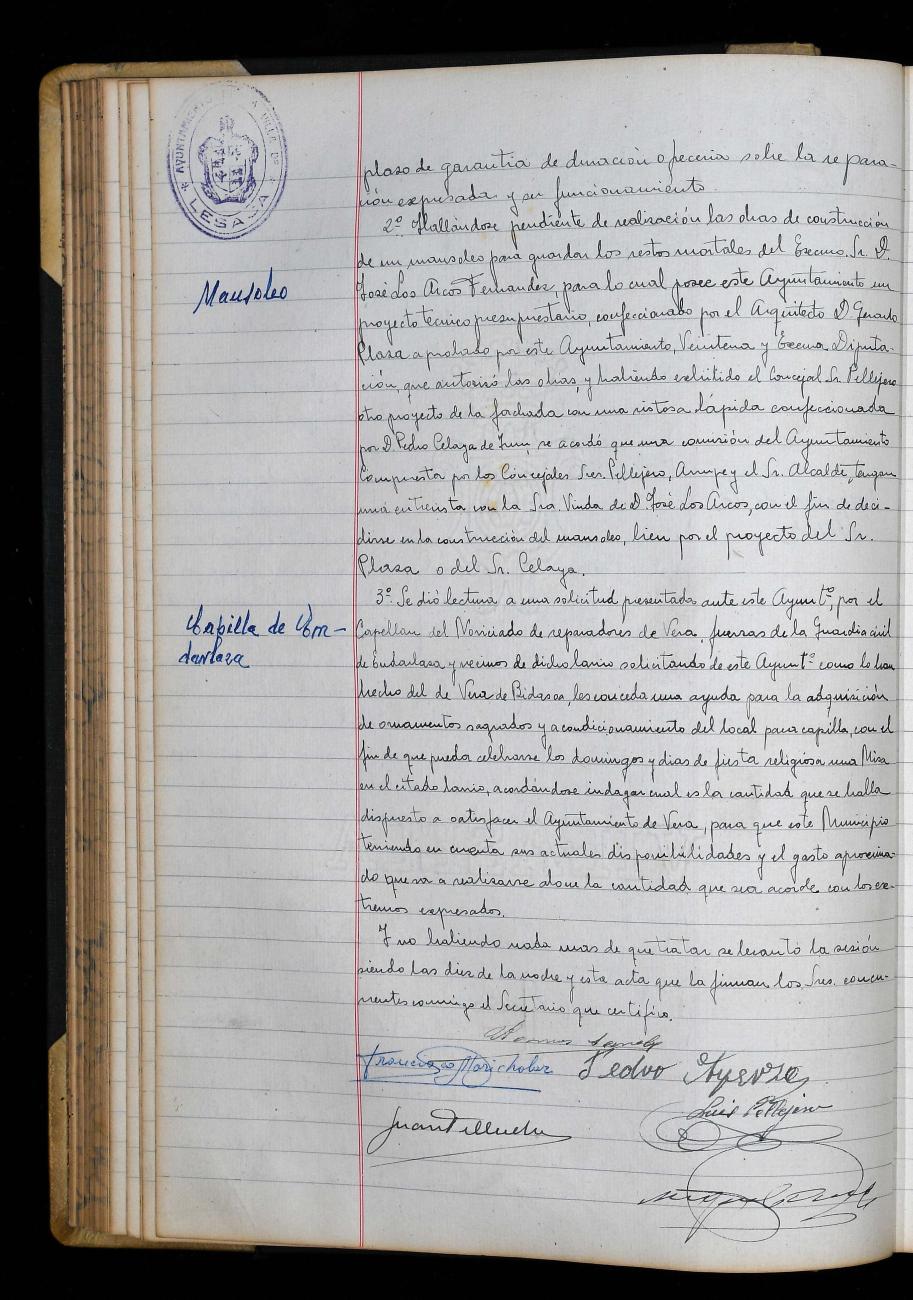 AYUNTAMIENTO DE LA VILLA DE
LESACA
plazo de garantia de duración ofreceria sobre la repara-
ción expresada y su funcionamiento.
2º Hallándose pendiente de realización las obras de construcción
Mausoleo
de un mausoleo para guardar los restos mortales del Excmo. Sr. D.
José Los Arcos Fernandez, para lo cual posee este Ayuntamiento un
proyecto técnico presupuestario, confeccionado por el Arquitecto D Gerardo
Plaza aprobado por este Ayuntamiento, Veintena y Excma. Diputa-
ción, que autorizó las obras, y habiendo exhibido el Concejal Sr. Pellejero
otro proyecto de la fachada con una vistosa lápida confeccionada
por D. Pedro Celaya de Irun, se acordó que una comisión del Ayuntamiento
compuesta por los Concejales Sres. Pellejero, y el Sr. Alcalde, tengan
una entrevista con la Sra. Viuda de D. José Los Arcos, con el fin de deci-
dirse en la construcción del mausoleo, bien por el proyecto del Sr.
Plaza o del Sr. Celaya.
3º. Se dió lectura a una solicitud presentada ante este Ayuntº, por el
Capilla de En-
darlaza
Capellán del Noviciado de reparadores de Vera, fuerzas de la Guardia civil
de Endarlaza y vecinos de dicho barrio solicitando de este Ayuntº como lo han
hecho del de Vera de Bidasoa, les conceda una ayuda para la adquisición
de ornamentos sagrados y acondicionamiento del local para capilla, con el
fin de que pueda celebrarse los domingos y dias de fiesta religiosa una Misa
en el citado barrio, acordándose indagar cual es la cantidad que se halla
dispuesto a satisfacer el Ayuntamiento de Vera, para que este Municipio
teniendo en cuenta sus actuales disponibilidades y el gasto aproxima-
do que va a realizarse abone la cantidad que sea acorde con los ex-
tremos expresados.
Y no habiendo nada mas de que tratar se levantó la sesión
siendo las diez de la noche y esta acta que la firman los Sres. concu-
rrentes conmigo el Secretario que certifico.
Francisco Marichalar Pedro
Luis Pellejero
Juan Tellechea